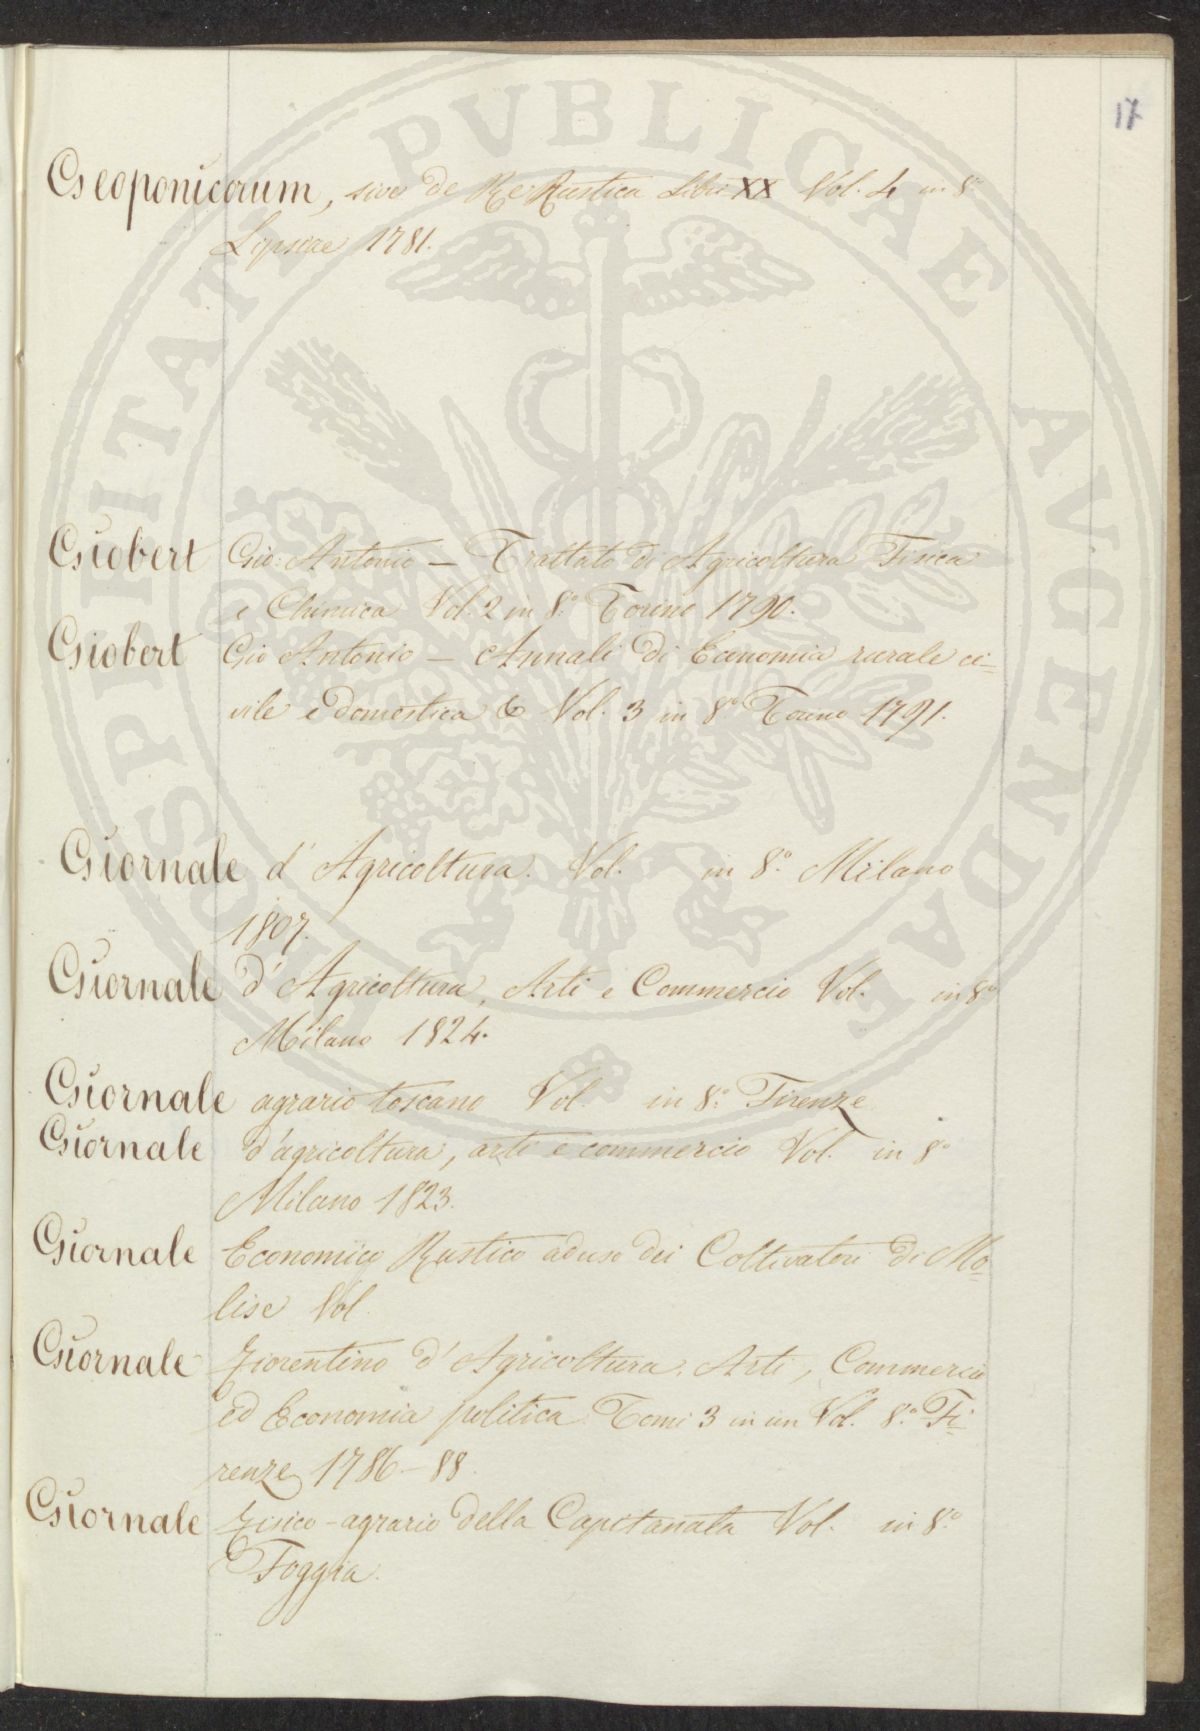 17
Geoponicorum, sive de Re Rustica Libri XX Vol. 4 in 8.º
Lipsiae 1781.
Giobert Gio: Antonio — Trattato di Agricoltura Fisica
e Chimica Vol. 2 in 8.º Torino 1790.
Giobert Gio Antonio — Annali di Economia rurale ci=
vile e domestica & Vol. 3 in 8.º Torino 1791.
Giornale d'Agricoltura. Vol. in 8.º Milano
1807.
Giornale d'Agricoltura, Arti e Commercio Vol. in 8.º
Milano 1824.
Giornale agrario toscano Vol. in 8.º Firenze
Giornale d'agricoltura, arti e commercio Vol. in 8.º
Milano 1823.
Giornale Economico Rustico ad uso dei Coltivatori di Mo=
lise Vol.
Giornale Fiorentino d'Agricoltura, Arti, Commercio
ed Economia politica Tomi 3 in un Vol. 8.º Fi=
renze 1786-88.
Giornale Fisico-agrario della Capitanata Vol. in 8.º
Foggia.
PROSPERITATI PVBLICAE AVGENDAE